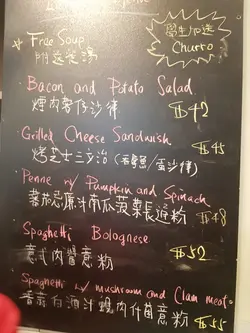 * Free Soup
附送餐湯
學生加送
Churro
· Bacon and Potato Salad
煙肉薯仔沙律 $42
· Grilled Cheese Sandwish
烤芝士三文治 (吞拿魚/蛋沙律) $45
· Penne w/ Pumpkin and Spinach
蕃茄忌廉汁南瓜菠菜長通粉 $48
· Spaghetti Bolognese
意式肉醬意粉 $52
· Spaghetti w/ mushroom and Clam meat
香蒜白酒汁蜆肉什菌意粉 $55